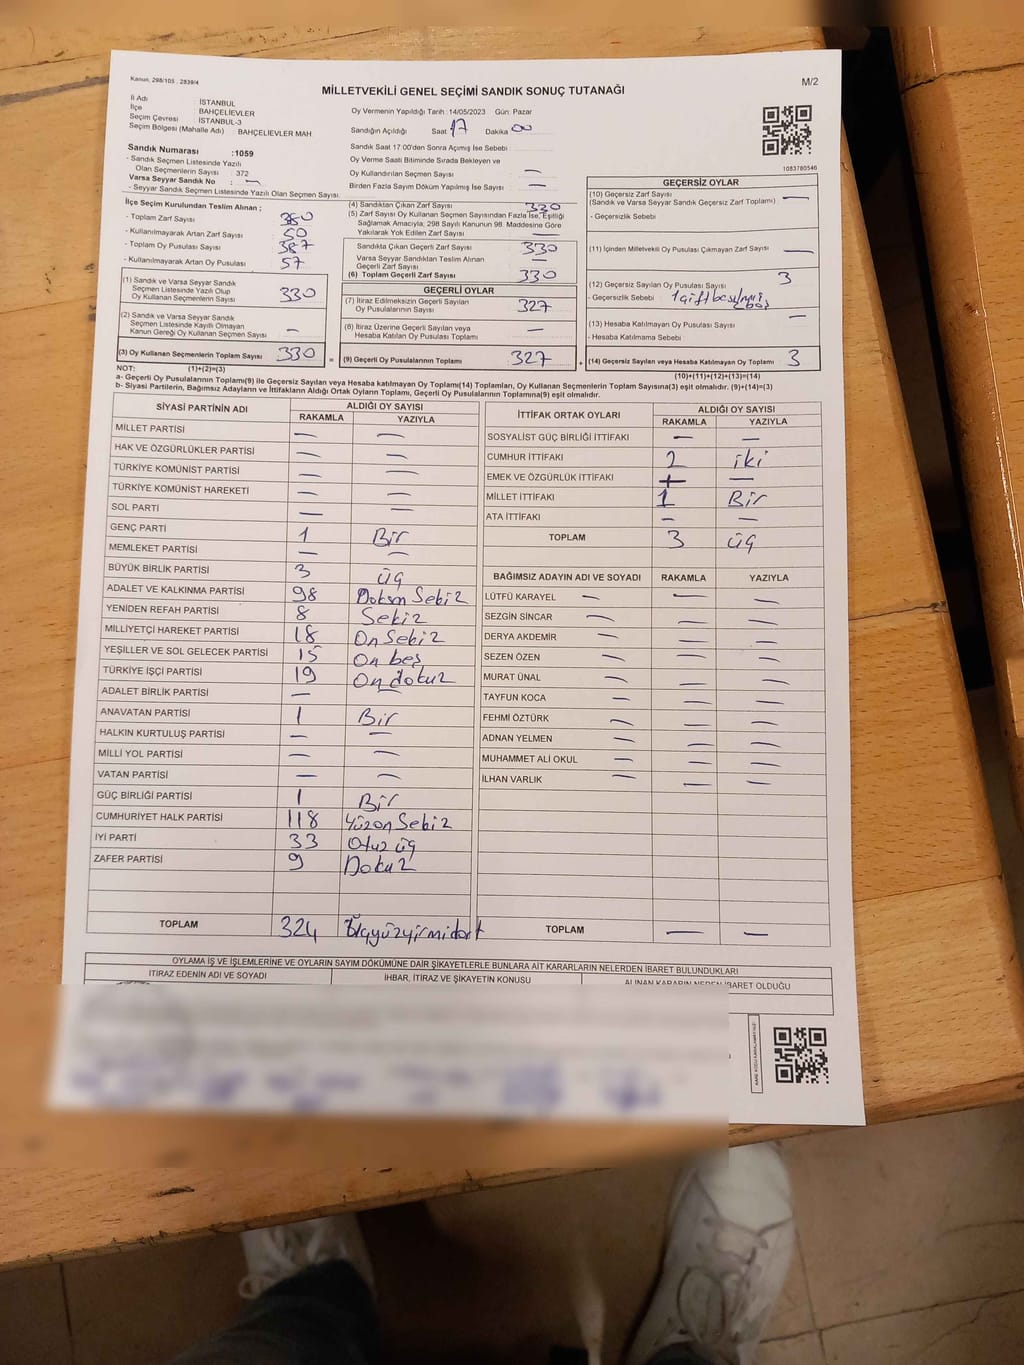 Kanun, 298/105 . 2839/4
M/2
MİLLETVEKİLİ GENEL SEÇİMİ SANDIK SONUÇ TUTANAĞI
İl Adı : İSTANBUL
İlçe : BAHÇELİEVLER
Seçim Çevresi : İSTANBUL-3
Seçim Bölgesi (Mahalle Adı) : BAHÇELİEVLER MAH
Sandık Numarası :1059
- Sandık Seçmen Listesinde Yazılı
Olan Seçmenlerin Sayısı : 372
Varsa Seyyar Sandık No : —
- Seyyar Sandık Seçmen Listesinde Yazılı Olan Seçmen Sayısı
Oy Vermenin Yapıldığı Tarih :14/05/2023 Gün: Pazar
Sandığın Açıldığı Saat 17 Dakika 00
Sandık Saat 17:00'den Sonra Açımış İse Sebebi
Oy Verme Saati Bitiminde Sırada Bekleyen ve
Oy Kullandırılan Seçmen Sayısı —
Birden Fazla Sayım Döküm Yapılmış İse Sayısı —
1083780546
İlçe Seçim Kurulundan Teslim Alınan ;
- Toplam Zarf Sayısı 380
- Kullanılmayarak Artan Zarf Sayısı 50
- Toplam Oy Pusulası Sayısı 387
- Kullanılmayarak Artan Oy Pusulası 57
(1) Sandık ve Varsa Seyyar Sandık
Seçmen Listesinde Yazılı Olup
Oy Kullanan Seçmenlerin Sayısı 330
(2) Sandık ve Varsa Seyyar Sandık
Seçmen Listesinde Kayıtlı Olmayan
Kanun Gereği Oy Kullanan Seçmen Sayısı —
(3) Oy Kullanan Seçmenlerin Toplam Sayısı 330 =
(4) Sandıktan Çıkan Zarf Sayısı 330
(5) Zarf Sayısı Oy Kullanan Seçmen Sayısından Fazla İse, Eşitliği
Sağlamak Amacıyla; 298 Sayılı Kanunun 98. Maddesine Göre
Yakılarak Yok Edilen Zarf Sayısı
Sandıkta Çıkan Geçerli Zarf Sayısı 330
Varsa Seyyar Sandıktan Teslim Alınan
Geçerli Zarf Sayısı —
(6) Toplam Geçerli Zarf Sayısı 330
GEÇERLİ OYLAR
(7) İtiraz Edilmeksizin Geçerli Sayılan
Oy Pusulalarının Sayısı 327
(8) İtiraz Üzerine Geçerli Sayılan veya
Hesaba Katılan Oy Pusulası Toplamı —
(9) Geçerli Oy Pusulalarının Toplamı 327 +
GEÇERSİZ OYLAR
(10) Geçersiz Zarf Sayısı
(Sandık ve Varsa Seyyar Sandık Geçersiz Zarf Toplamı) —
- Geçersizlik Sebebi
(11) İçinden Milletvekili Oy Pusulası Çıkmayan Zarf Sayısı —
(12) Geçersiz Sayılan Oy Pusulası Sayısı 3
- Geçersizlik Sebebi : 1 çift
boş
(13) Hesaba Katılmayan Oy Pusulası Sayısı —
- Hesaba Katılmama Sebebi
(14) Geçersiz Sayılan veya Hesaba Katılmayan Oy Toplamı 3
NOT: (1)+(2)=(3) (10)+(11)+(12)+(13)=(14)
a- Geçerli Oy Pusulalarının Toplamı(9) ile Geçersiz Sayılan veya Hesaba katılmayan Oy Toplamı(14) Toplamları, Oy Kullanan Seçmenlerin Toplam Sayısına(3) eşit olmalıdır. (9)+(14)=(3)
b- Siyasi Partilerin, Bağımsız Adayların ve İttifakların Aldığı Ortak Oyların Toplamı, Geçerli Oy Pusulalarının Toplamına(9) eşit olmalıdır.
SİYASİ PARTİNİN ADI ALDIĞI OY SAYISI
RAKAMLA YAZIYLA
MİLLET PARTİSİ — —
HAK VE ÖZGÜRLÜKLER PARTİSİ — —
TÜRKİYE KOMÜNİST PARTİSİ — —
TÜRKİYE KOMÜNİST HAREKETİ — —
SOL PARTİ — —
GENÇ PARTİ 1 Bir
MEMLEKET PARTİSİ — —
BÜYÜK BİRLİK PARTİSİ 3 üç
ADALET VE KALKINMA PARTİSİ 98 Doksan Sekiz
YENİDEN REFAH PARTİSİ 8 Sekiz
MİLLİYETÇİ HAREKET PARTİSİ 18 On Sekiz
YEŞİLLER VE SOL GELECEK PARTİSİ 15 On beş
TÜRKİYE İŞÇİ PARTİSİ 19 On dokuz
ADALET BİRLİK PARTİSİ — —
ANAVATAN PARTİSİ 1 Bir
HALKIN KURTULUŞ PARTİSİ — —
MİLLİ YOL PARTİSİ — —
VATAN PARTİSİ — —
GÜÇ BİRLİĞİ PARTİSİ 1 Bir
CUMHURİYET HALK PARTİSİ 118 Yüzon Sekiz
İYİ PARTİ 33 Otuz üç
ZAFER PARTİSİ 9 Dokuz
TOPLAM 324 Üçyüzyirmidört
İTTİFAK ORTAK OYLARI ALDIĞI OY SAYISI
RAKAMLA YAZIYLA
SOSYALİST GÜÇ BİRLİĞİ İTTİFAKI — —
CUMHUR İTTİFAKI 2 iki
EMEK VE ÖZGÜRLÜK İTTİFAKI — —
MİLLET İTTİFAKI 1 Bir
ATA İTTİFAKI — —
TOPLAM 3 üç
BAĞIMSIZ ADAYIN ADI VE SOYADI RAKAMLA YAZIYLA
LÜTFÜ KARAYEL — — —
SEZGİN SİNCAR — — —
DERYA AKDEMİR — — —
SEZEN ÖZEN — — —
MURAT ÜNAL — — —
TAYFUN KOCA — — —
FEHMİ ÖZTÜRK — — —
ADNAN YELMEN — — —
MUHAMMET ALİ OKUL — — —
İLHAN VARLIK — — —
TOPLAM — —
OYLAMA İŞ VE İŞLEMLERİNE VE OYLARIN SAYIM DÖKÜMÜNE DAİR ŞİKAYETLERLE BUNLARA AİT KARARLARIN NELERDEN İBARET BULUNDUKLARI
İTİRAZ EDENİN ADI VE SOYADI İHBAR, İTİRAZ VE ŞİKAYETİN KONUSU ALINAN KARARIN NEDEN İBARET OLDUĞU